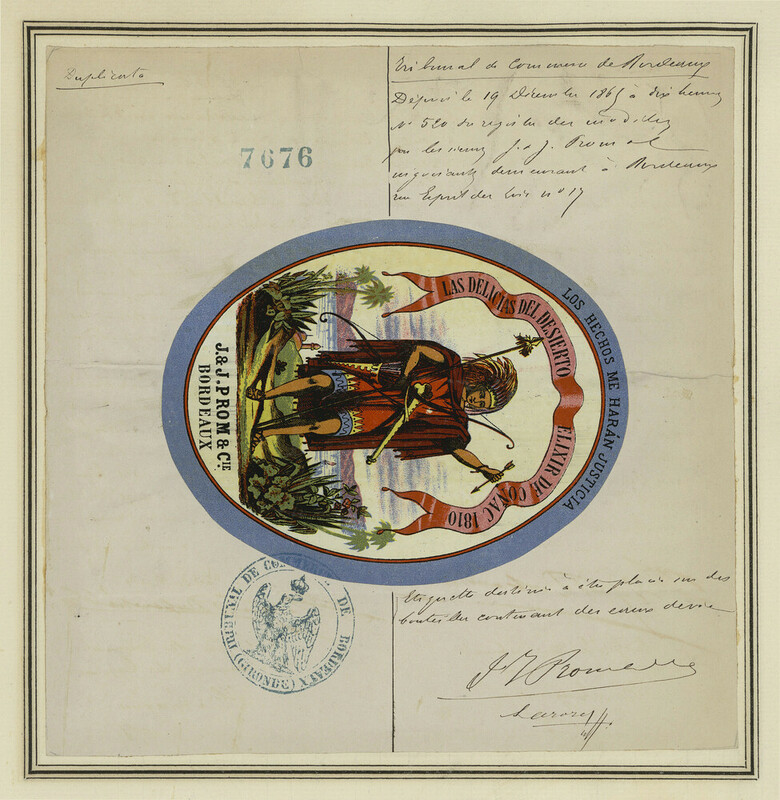 Duplicata
7676
Tribunal de Commerce de Bordeaux
Déposé le 19 Décembre 1865 à dix heures
No 520 du registre des modèles
par les sieurs J. & J. Prom et
négociants demeurant à Bordeaux
rue Esprit des Lois no 17
LOS HECHOS ME HARÁN JUSTICIA
LAS DELICIAS DEL DESIERTO ELIXIR DE COÑAC 1810
J. & J. PROM & CIE.
BORDEAUX
TRIBUNAL DE COMMERCE DE BORDEAUX
(GIRONDE)
Etiquette destinée à être placée sur des
bouteilles contenant des eaux de vie
J J Prom